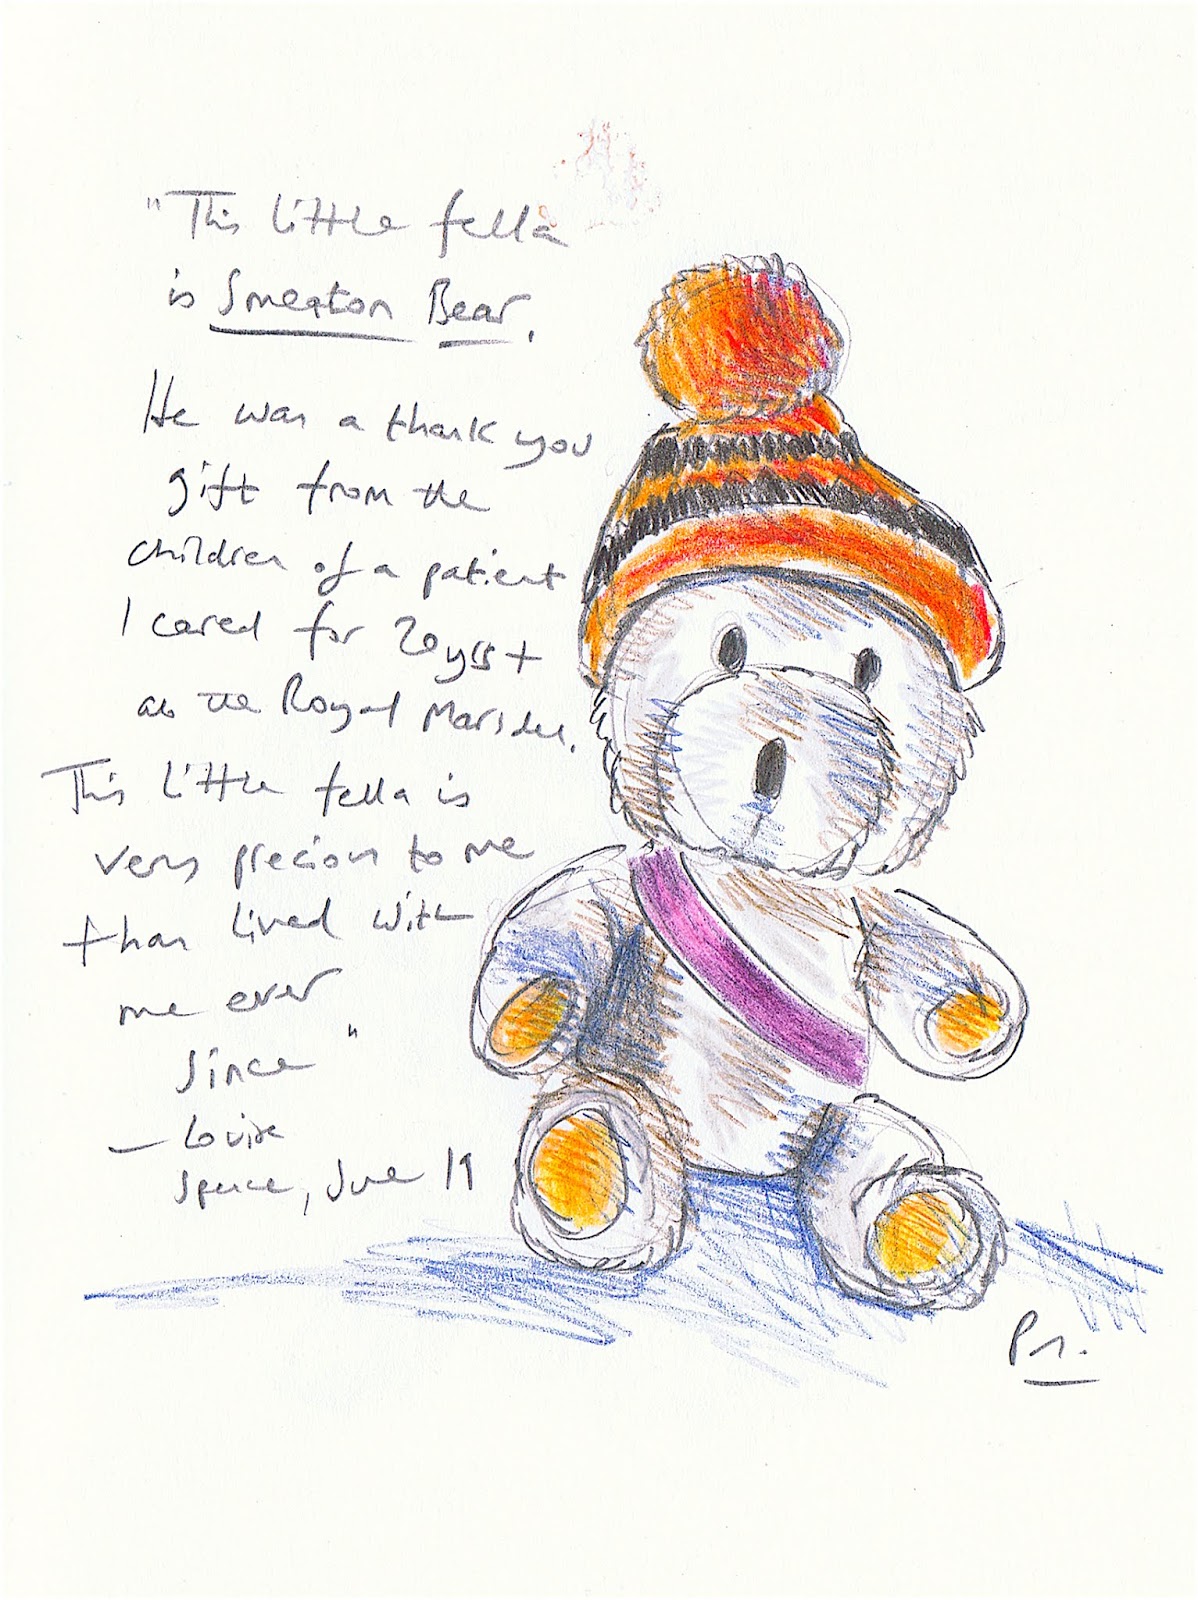 "This little fella
is Smeaton Bear.
He was a thank you
gift from the
children of a patient
I cared for 20yrs+
at the Royal Marsden.
This little fella is
very precious to me
+ has lived with
me ever
since"
— Louise
Spence, June 19